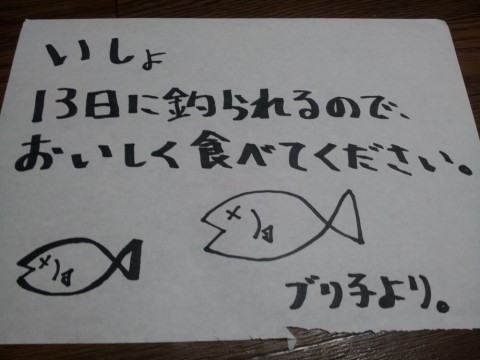 いしょ
13日に釣られるので、
おいしく食べてください。
ブリ子より。